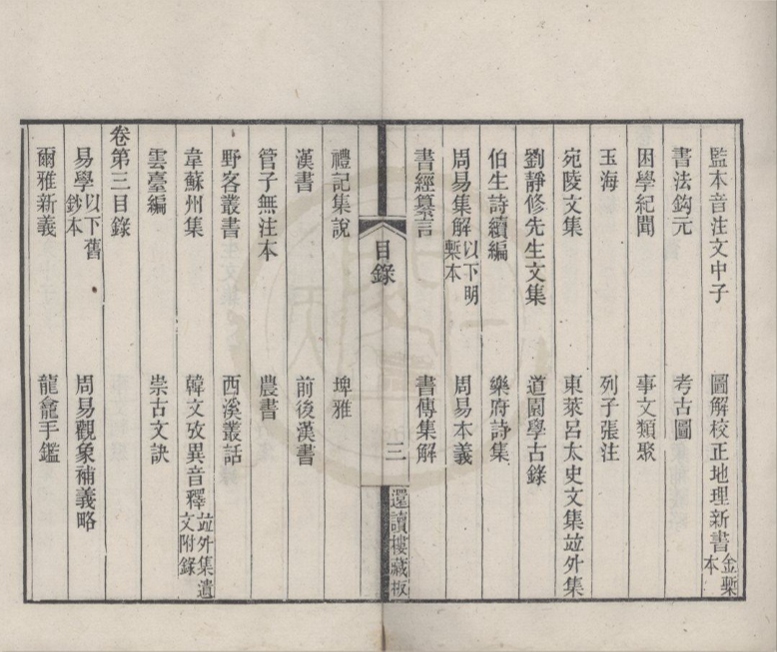 監本音注文中子　圖解校正地理新書金槧本
書法鈎元　考古圖
困學紀聞　事文類聚
玉海　列子張注
宛陵文集　東萊呂太史文集竝外集
劉靜修先生文集　道園學古錄
伯生詩續編　樂府詩集
周易集解以下明槧本　周易本義
書經纂言　書傳集解
目錄　三　還讀樓藏板
禮記集說　埤雅
漢書　前後漢書
管子無注本　農書
野客叢書　西溪叢話
韋蘇州集　韓文攷異音釋竝外集遺文附錄
雲臺編　崇古文訣
卷第三目錄
易學以下舊鈔本　周易觀象補義略
爾雅新義　龍龕手鑑